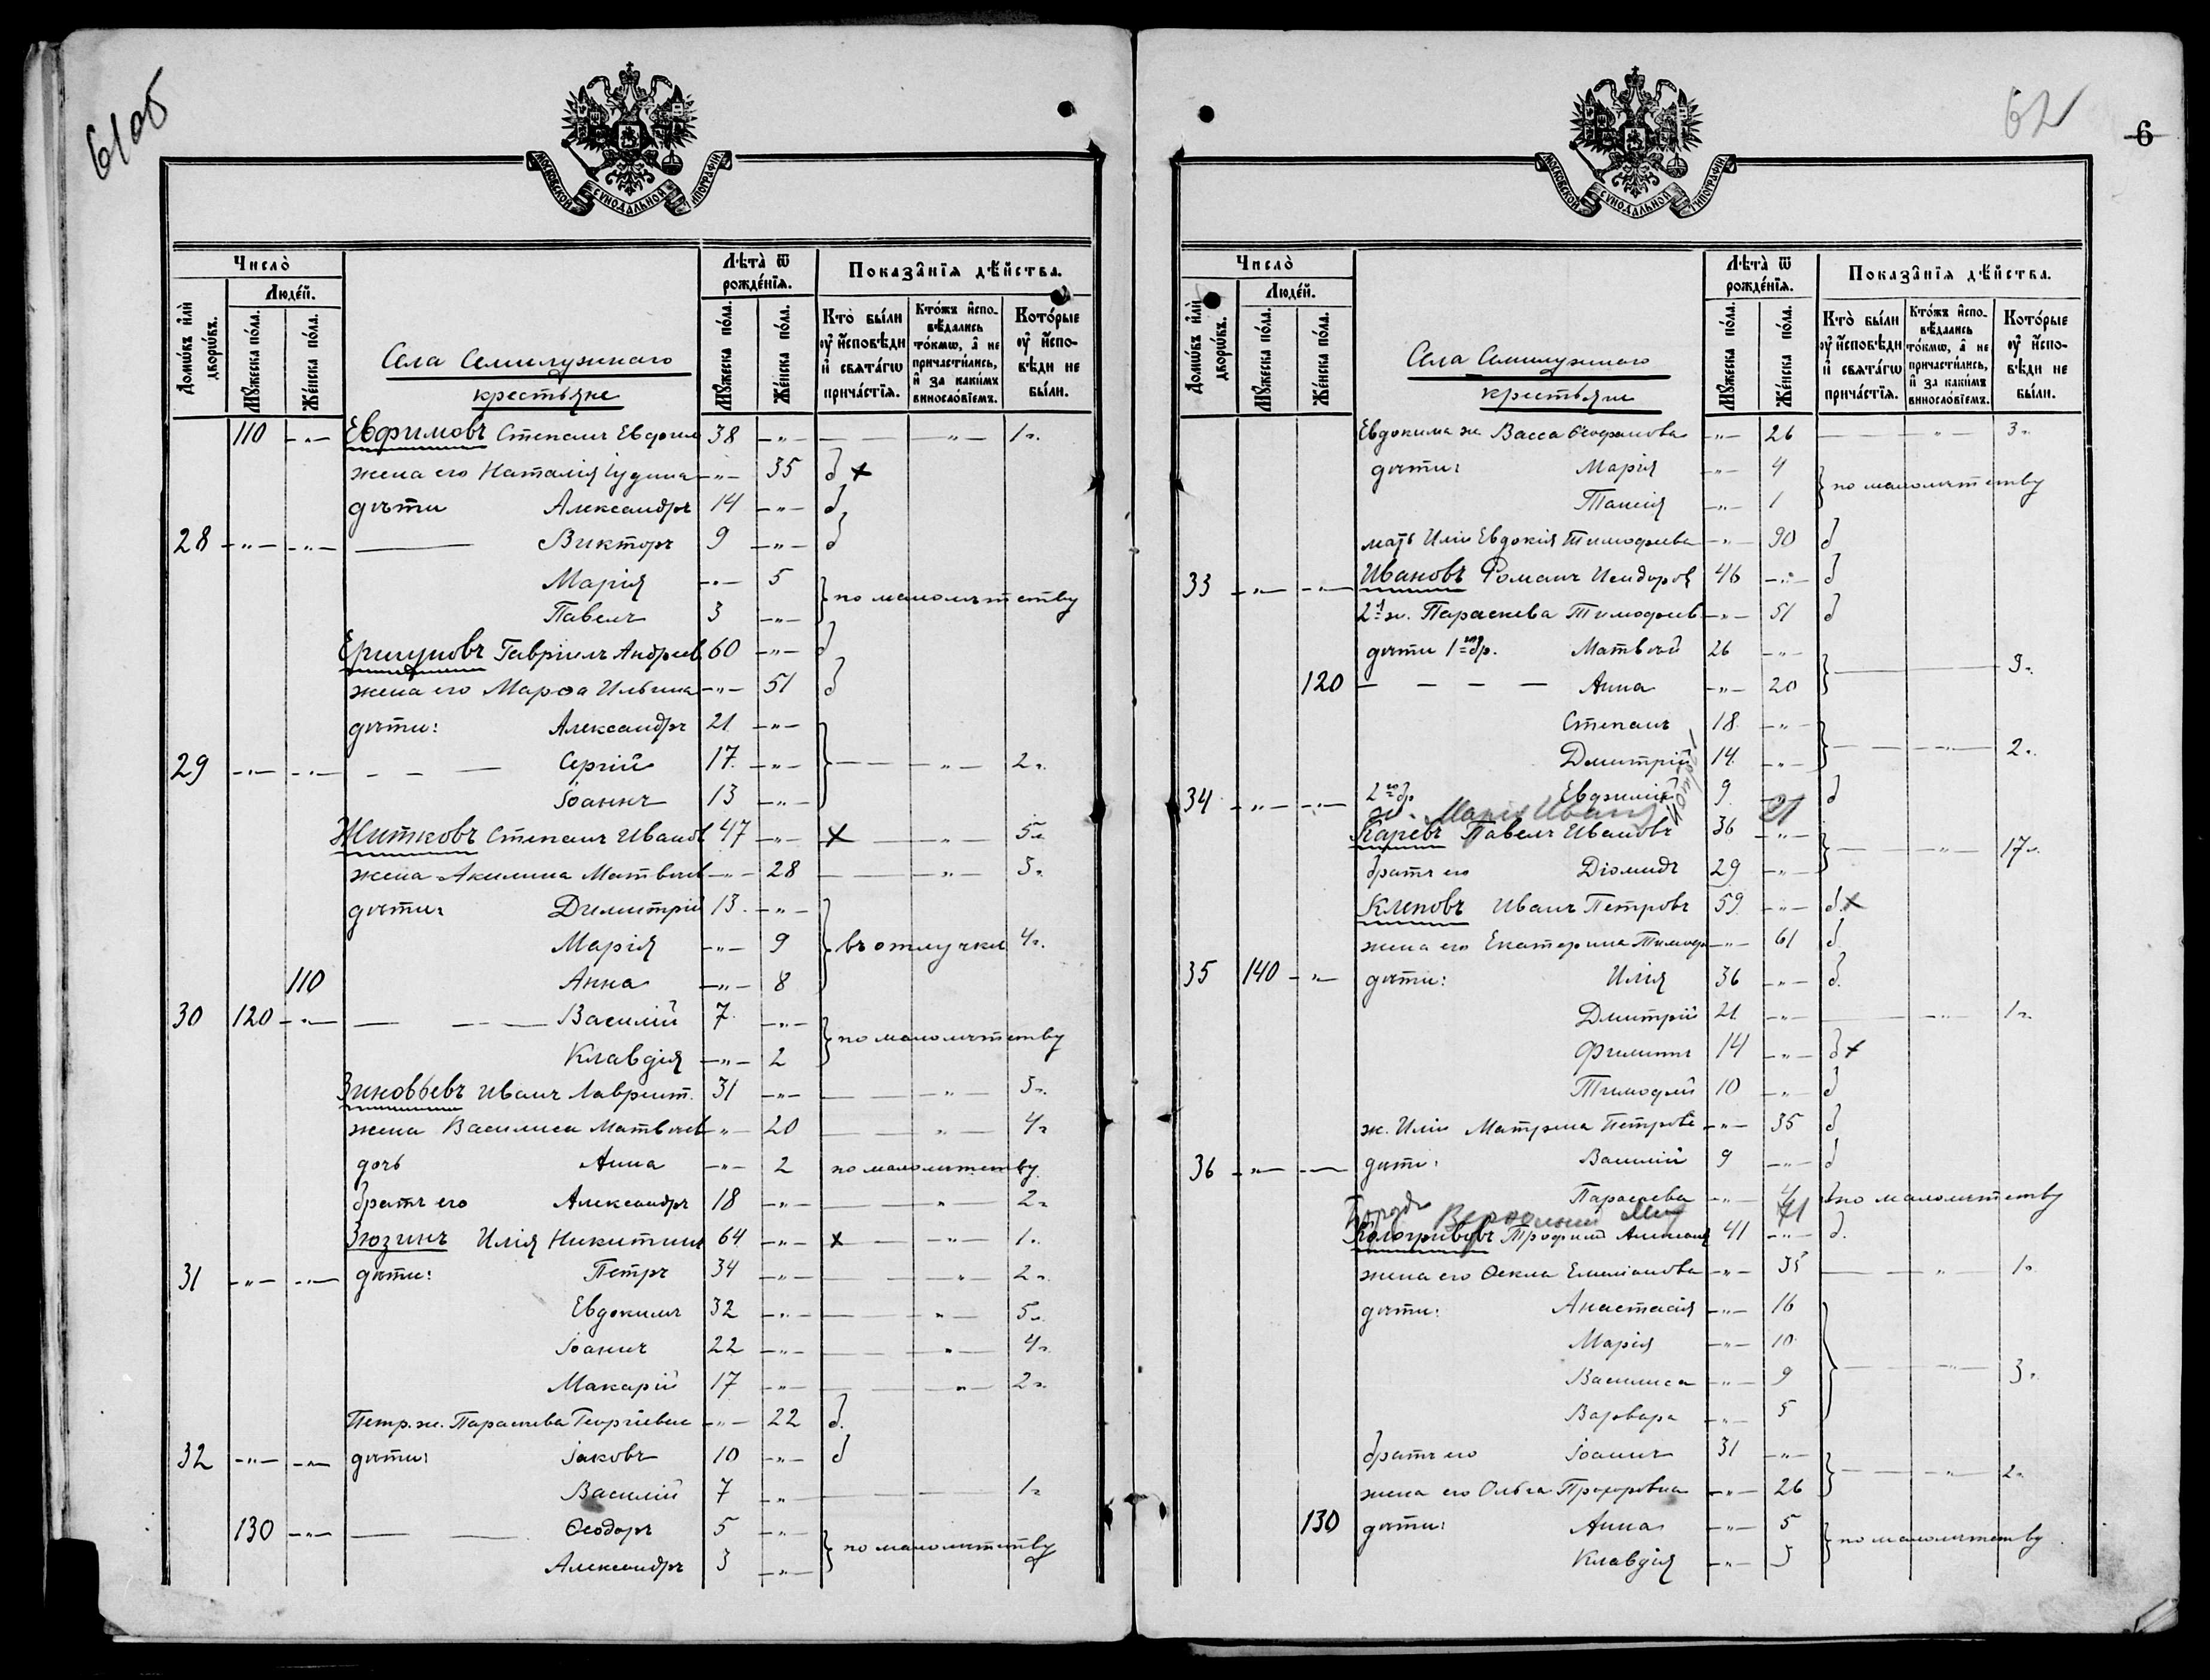 61об
МОСКОВСКОЙ СѴНОДАЛЬНОЙ ТИПОГРАФІИ
Число̀
Людє́й.
Домѡ́въ и҆лѝ дворѡ́въ.
Мꙋ́жеска по́ла.
Же́нска по́ла.
Села Семилужнаго
крестьяне
Лѣта̀ ѿ рожде́нїѧ.
Мꙋ́жеска по́ла.
Же́нска по́ла.
Показа̑нїѧ дѣ́йства.
Кто̀ бы́ли ᲂу҆ и҆сповѣди и҆ свѧта́гѡ прича́стїѧ.
Кто́жъ и҆спо­вѣдались то́кмѡ, а҆ не причасти́лись, и҆ за каки́мъ винословїемъ.
Кото́рые ᲂу҆ и҆спо­вѣди не бы́ли.
110 -„- Евфимовъ Степанъ Евдоким 38 -„- — -„- 1 г.
жена его Наталія Іудина -„- 35 д +
дѣти Александръ 14 -„- д
28 -„- -„- — Викторъ 9 -„- д
Марія -„- 5
Павелъ 3 -„- } по малолѣтству
Ершуновъ Гавріилъ Андреев. 60 -„- д
жена его Марѳа Ильина -„- 51 д
дѣти: Александръ 21 -„-
29 -„- -„- — Сергій 17 -„- } — -„- 2 г.
Іоаннъ 13 -„-
Житковъ Степанъ Иванов 47 -„- + -„- 5 г.
жена Акилина Матвѣев -„- 28 — -„- 3 г.
дѣти: Димитрій 13 -„-
Марія -„- 9 } въ отлучки 4 г.
110 Анна -„- 8
30 120 -„- — Василій 7 -„-
Клавдія -„- 2 } по малолѣтству
Зиновьевъ Иванъ Лаврент. 31 -„- — -„- 3 г.
жена Василиса Матвѣев -„- 20 — -„- 4 г.
дочь Анна -„- 2 по малолѣтству.
братъ его Александръ 18 -„- -„- 2 г.
Зюзинъ Илія Никитинъ 64 -„- + -„- 1 г.
31 -„- -„- дѣти: Петръ 34 -„- — -„- 2 г.
Евдокимъ 32 -„- — -„- 5 г.
Іоаннъ 22 -„- — -„- 4 г.
Макарій 17 -„- — -„- 2 г.
Петр. ж. Параскева Георгіевна -„- 22 д.
32 -„- -„- дѣти: Іаковъ 10 -„- д
Василій 7 -„- — 1 г.
130 -„- — Ѳеодоръ 5 -„-
Александръ 3 -„- } по малолѣтству
62
6
МОСКОВСКОЙ СѴНОДАЛЬНОЙ ТИПОГРАФІИ
Число̀
Людє́й.
Домѡ́въ и҆лѝ дворѡ́въ.
Мꙋ́жеска по́ла.
Же́нска по́ла.
Села Семилужнаго
крестьяне
Лѣта̀ ѿ рожде́нїѧ.
Мꙋ́жеска по́ла.
Же́нска по́ла.
Показа̑нїѧ дѣ́йства.
Кто̀ бы́ли ᲂу҆ и҆сповѣди и҆ свѧта́гѡ прича́стїѧ.
Кто́жъ и҆спо­вѣдались то́кмѡ, а҆ не причасти́лись, и҆ за каки́мъ винословїемъ.
Кото́рые ᲂу҆ и҆спо­вѣди не бы́ли.
Евдокима ж. Васса Ѳеофанова -„- 26 — -„- 3 г.
дѣти: Марія -„- 4
Таисія -„- 1 } по малолѣтству
мать Иліи Евдокія Тимофеева -„- 90 д
33 -„- -„- Ивановъ Романъ Исидоров 46 -„- д
2-я ж. Параскева Тимофеев -„- 51 д
дѣти 1го бр. Матвѣй 26 -„-
120 — Анна -„- 20 } — 3 г.
Степанъ 18 -„-
Дмитрій 14 -„- } — -„- 2 г.
34 -„- -„- 2го бр Евфимій 9 д
ж. Марія Иван 21
Каревъ Павелъ Ивановъ 36 -„-
братъ его Діомидъ 29 -„- } — -„- 17 г.
Клиновъ Иванъ Петровъ 59 -„- д +
жена его Екатерина Тимоф -„- 61 д.
35 140 -„- дѣти: Илія 36 -„- д.
Дмитрій 21 -„- — -„- 1 г.
Филиппъ 14 -„- д +
Тимофей 10 -„- д
ж. Иліи Матрона Петрова -„- 35 д
36 -„- -„- дѣти: Василій 9 -„- д
Параскева -„- 4 } по малолѣтству
41
Кологривовъ Трофимъ 41 -„- д.
жена его Ѳекла Емеліанова -„- 35 — -„- 1 г.
дѣти: Анастасія -„- 16
Марія -„- 10
Василиса -„- 9 } — -„- 3 г.
Варвара -„- 5
братъ его Іоаннъ 31 -„-
жена его Ольга Прохоровна -„- 26 } — -„- 2 г.
130 дѣти: Анна -„- 5
Клавдія -„- 3 } по малолѣтству